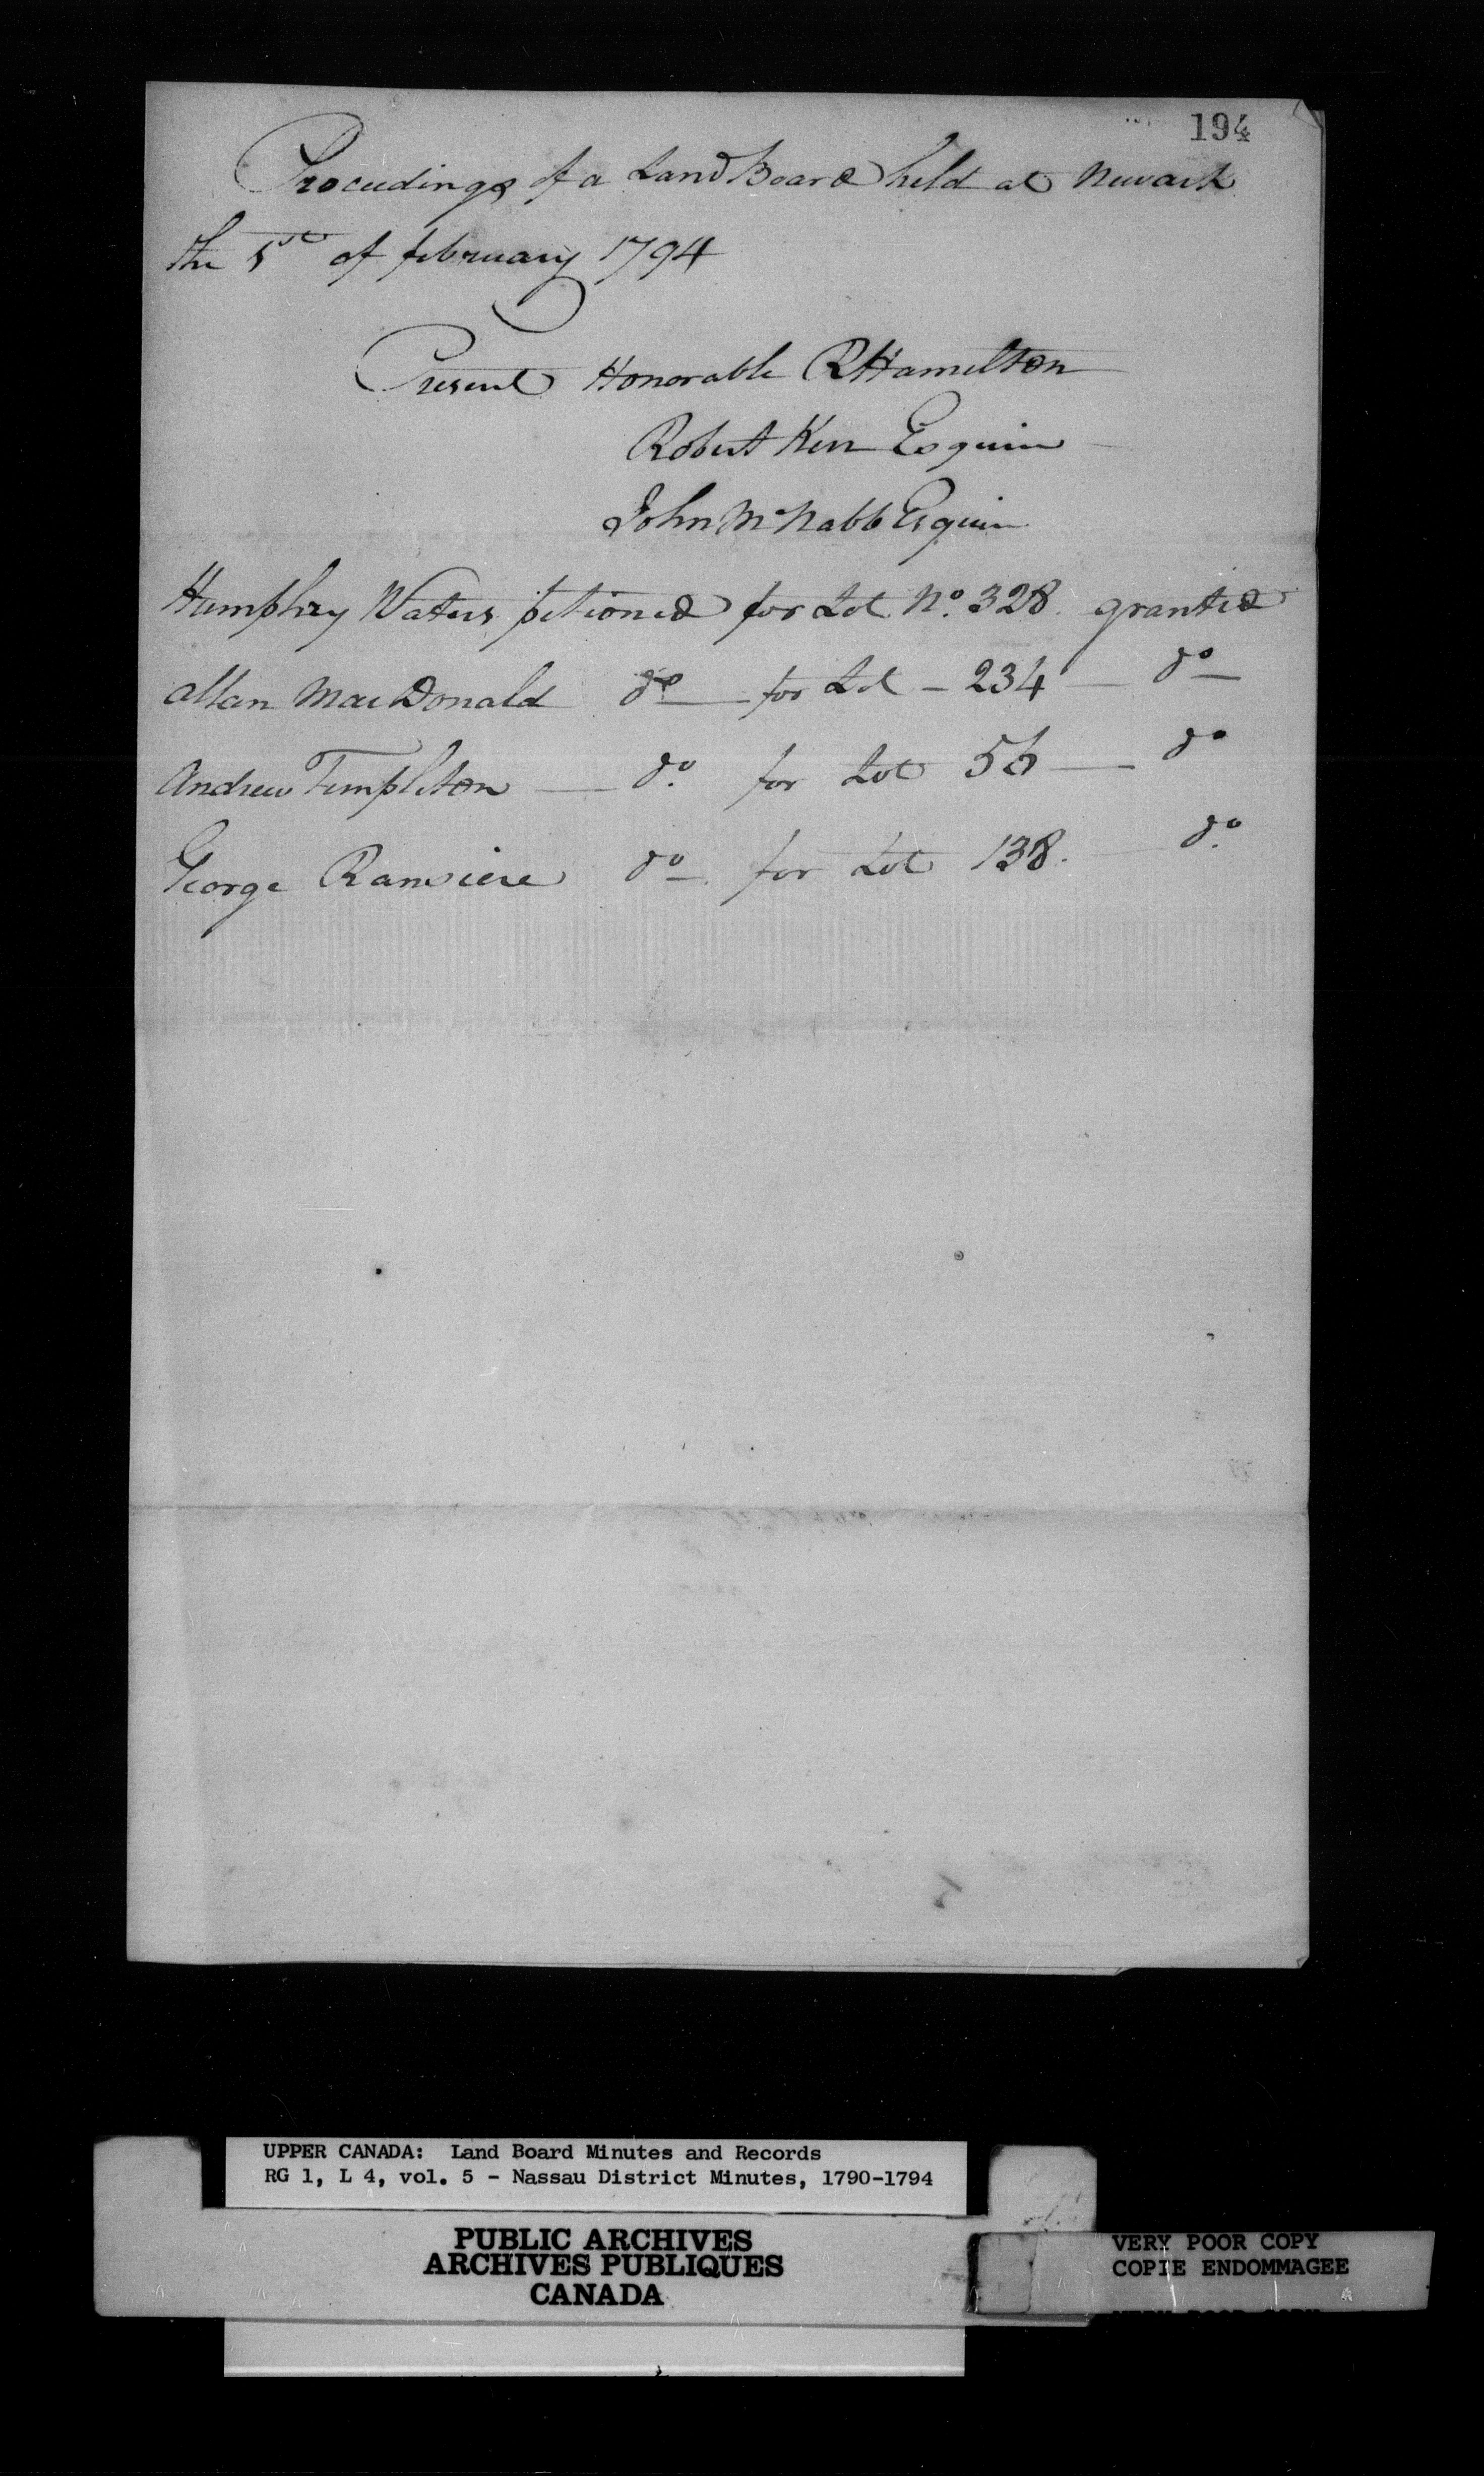 194
Proceedings of a Land Board held at Newark
the 1st of february 1794
Present Honorable R Hamilton
Robert Kerr Esquire
John McNabb Esquire
Humphry Waters petioned for Lot No. 328 granted
Allan MacDonald do for Lot - 234 - do
Andrew Templeton - do for Lot 56 - do
George Ransiere do for Lot 138. do
UPPER CANADA: Land Board Minutes and Records
RG 1, L 4, vol. 5 - Nassau District Minutes, 1790-1794
PUBLIC ARCHIVES
ARCHIVES PUBLIQUES
CANADA
VERY POOR COPY
COPIE ENDOMMAGEE